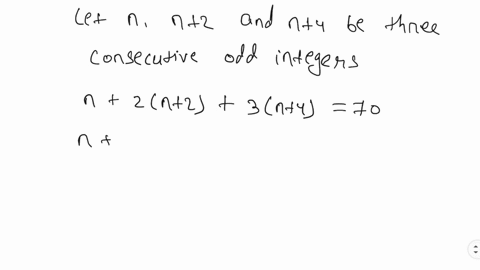 Let n, n+2 and n+4 be three
consecutive odd integers
n + 2(n+2) + 3(n+4) = 70
n +